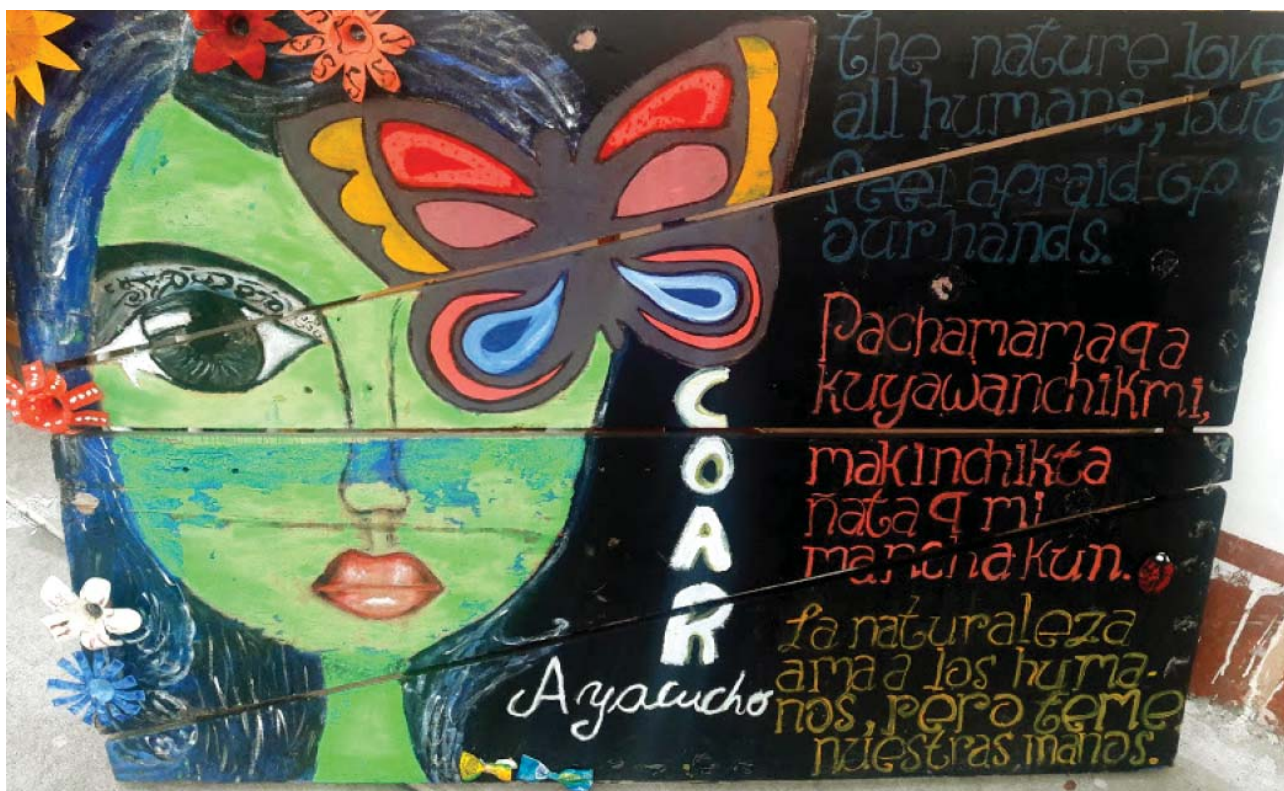 the nature love
all humans, but
feel afraid of
our hands.
Pachamamaqa
kuyawanchikmi,
makinchikta
ñataqmi
manchakun.
La naturaleza
ama a los huma-
nos, pero teme
nuestras manos.
COAR
Ayacucho